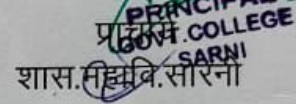 PRINCIPAL
GOVT.COLLEGE
SARNI
प्राचार्य
शास.महावि.सारनी